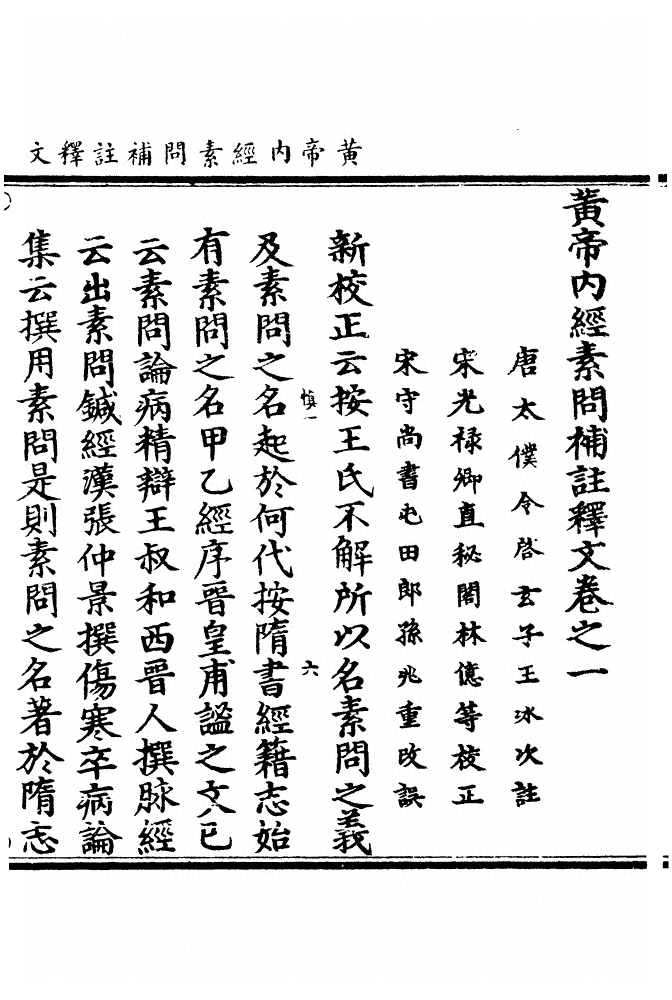 黄帝内經素問補註釋文
黄帝内經素問補註釋文卷之一
唐太僕令啓玄子王冰次註
宋光禄卿直秘閣林億等校正
宋守尚書屯田郎孫兆重改誤
新校正云按王氏不解所以名素問之義
慎一
六
及素問之名起於何代按隋書經籍志始
有素問之名甲乙經序晉皇甫謐之文已
云素問論病精辯王叔和西晉人撰脉經
云出素問鍼經漢張仲景撰傷寒卒病論
集云撰用素問是則素問之名著於隋志